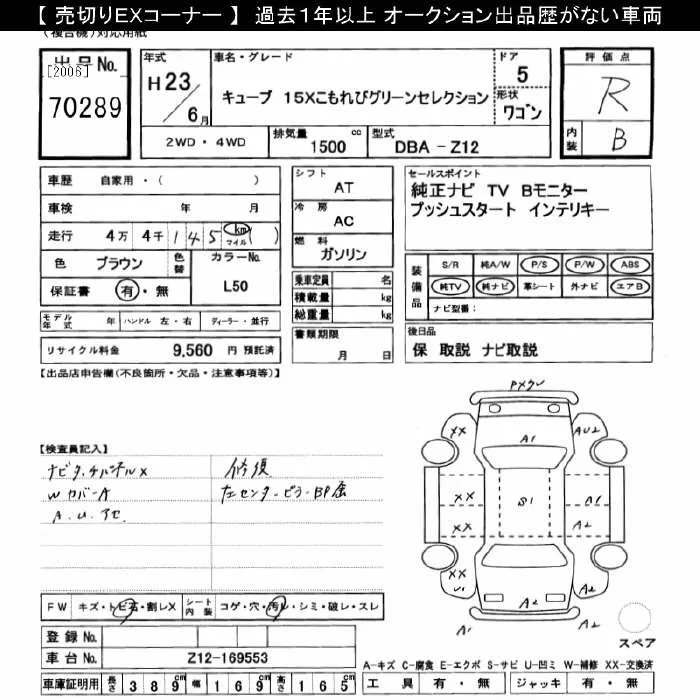 【 売切りEXコーナー 】 過去１年以上 オークション出品歴がない車両
(複合機)対応用紙
出品No.
[2006]
70289
年式
H23/6月
車名・グレード
キューブ 15Xこもれびグリーンセレクション
ドア
5
形状
ワゴン
評価点
R
内装
B
2WD・4WD
排気量
1500 cc
型式
DBA - Z12
車歴 自家用・( )
車検 年 月
走行 4万 4千 145 km マイル ( )
色 ブラウン
色替
カラーNo.
L50
保証書 有・無
モデル年式 年
ハンドル 左・右
ディーラー・並行
リサイクル料金 9,560 円 預託済
シフト
AT
冷房
AC
燃料
ガソリン
乗車定員 名
積載量 kg
総重量 kg
書類期限
月 日
セールスポイント
純正ナビ TV Bモニター
プッシュスタート インテリキー
装備品
S/R 純A/W P/S P/W ABS
純TV 純ナビ 革シート 外ナビ エアB
ナビ型番：
後日品
保 取説 ナビ取説
【出品店申告欄(不良箇所・欠品・注意事項等)】
【検査員記入】
W カバーA
修復
左センターピラーBP歪
FW キズ・トビ石・割レX
シート内装 コゲ・穴・汚レ・シミ・破レ・スレ
登録No.
車台No. Z12-169553
車庫証明用 長さ 389cm 幅 169cm 高さ 165cm
XX
A1
AU2
XX
S1
A1
XX
A2
XX
U1
A2
A2
A1
A2
スペア
A-キズ C-腐食 E-エクボ S-サビ U-凹ミ W-補修 XX-交換済
工具 有・無 ジャッキ 有・無